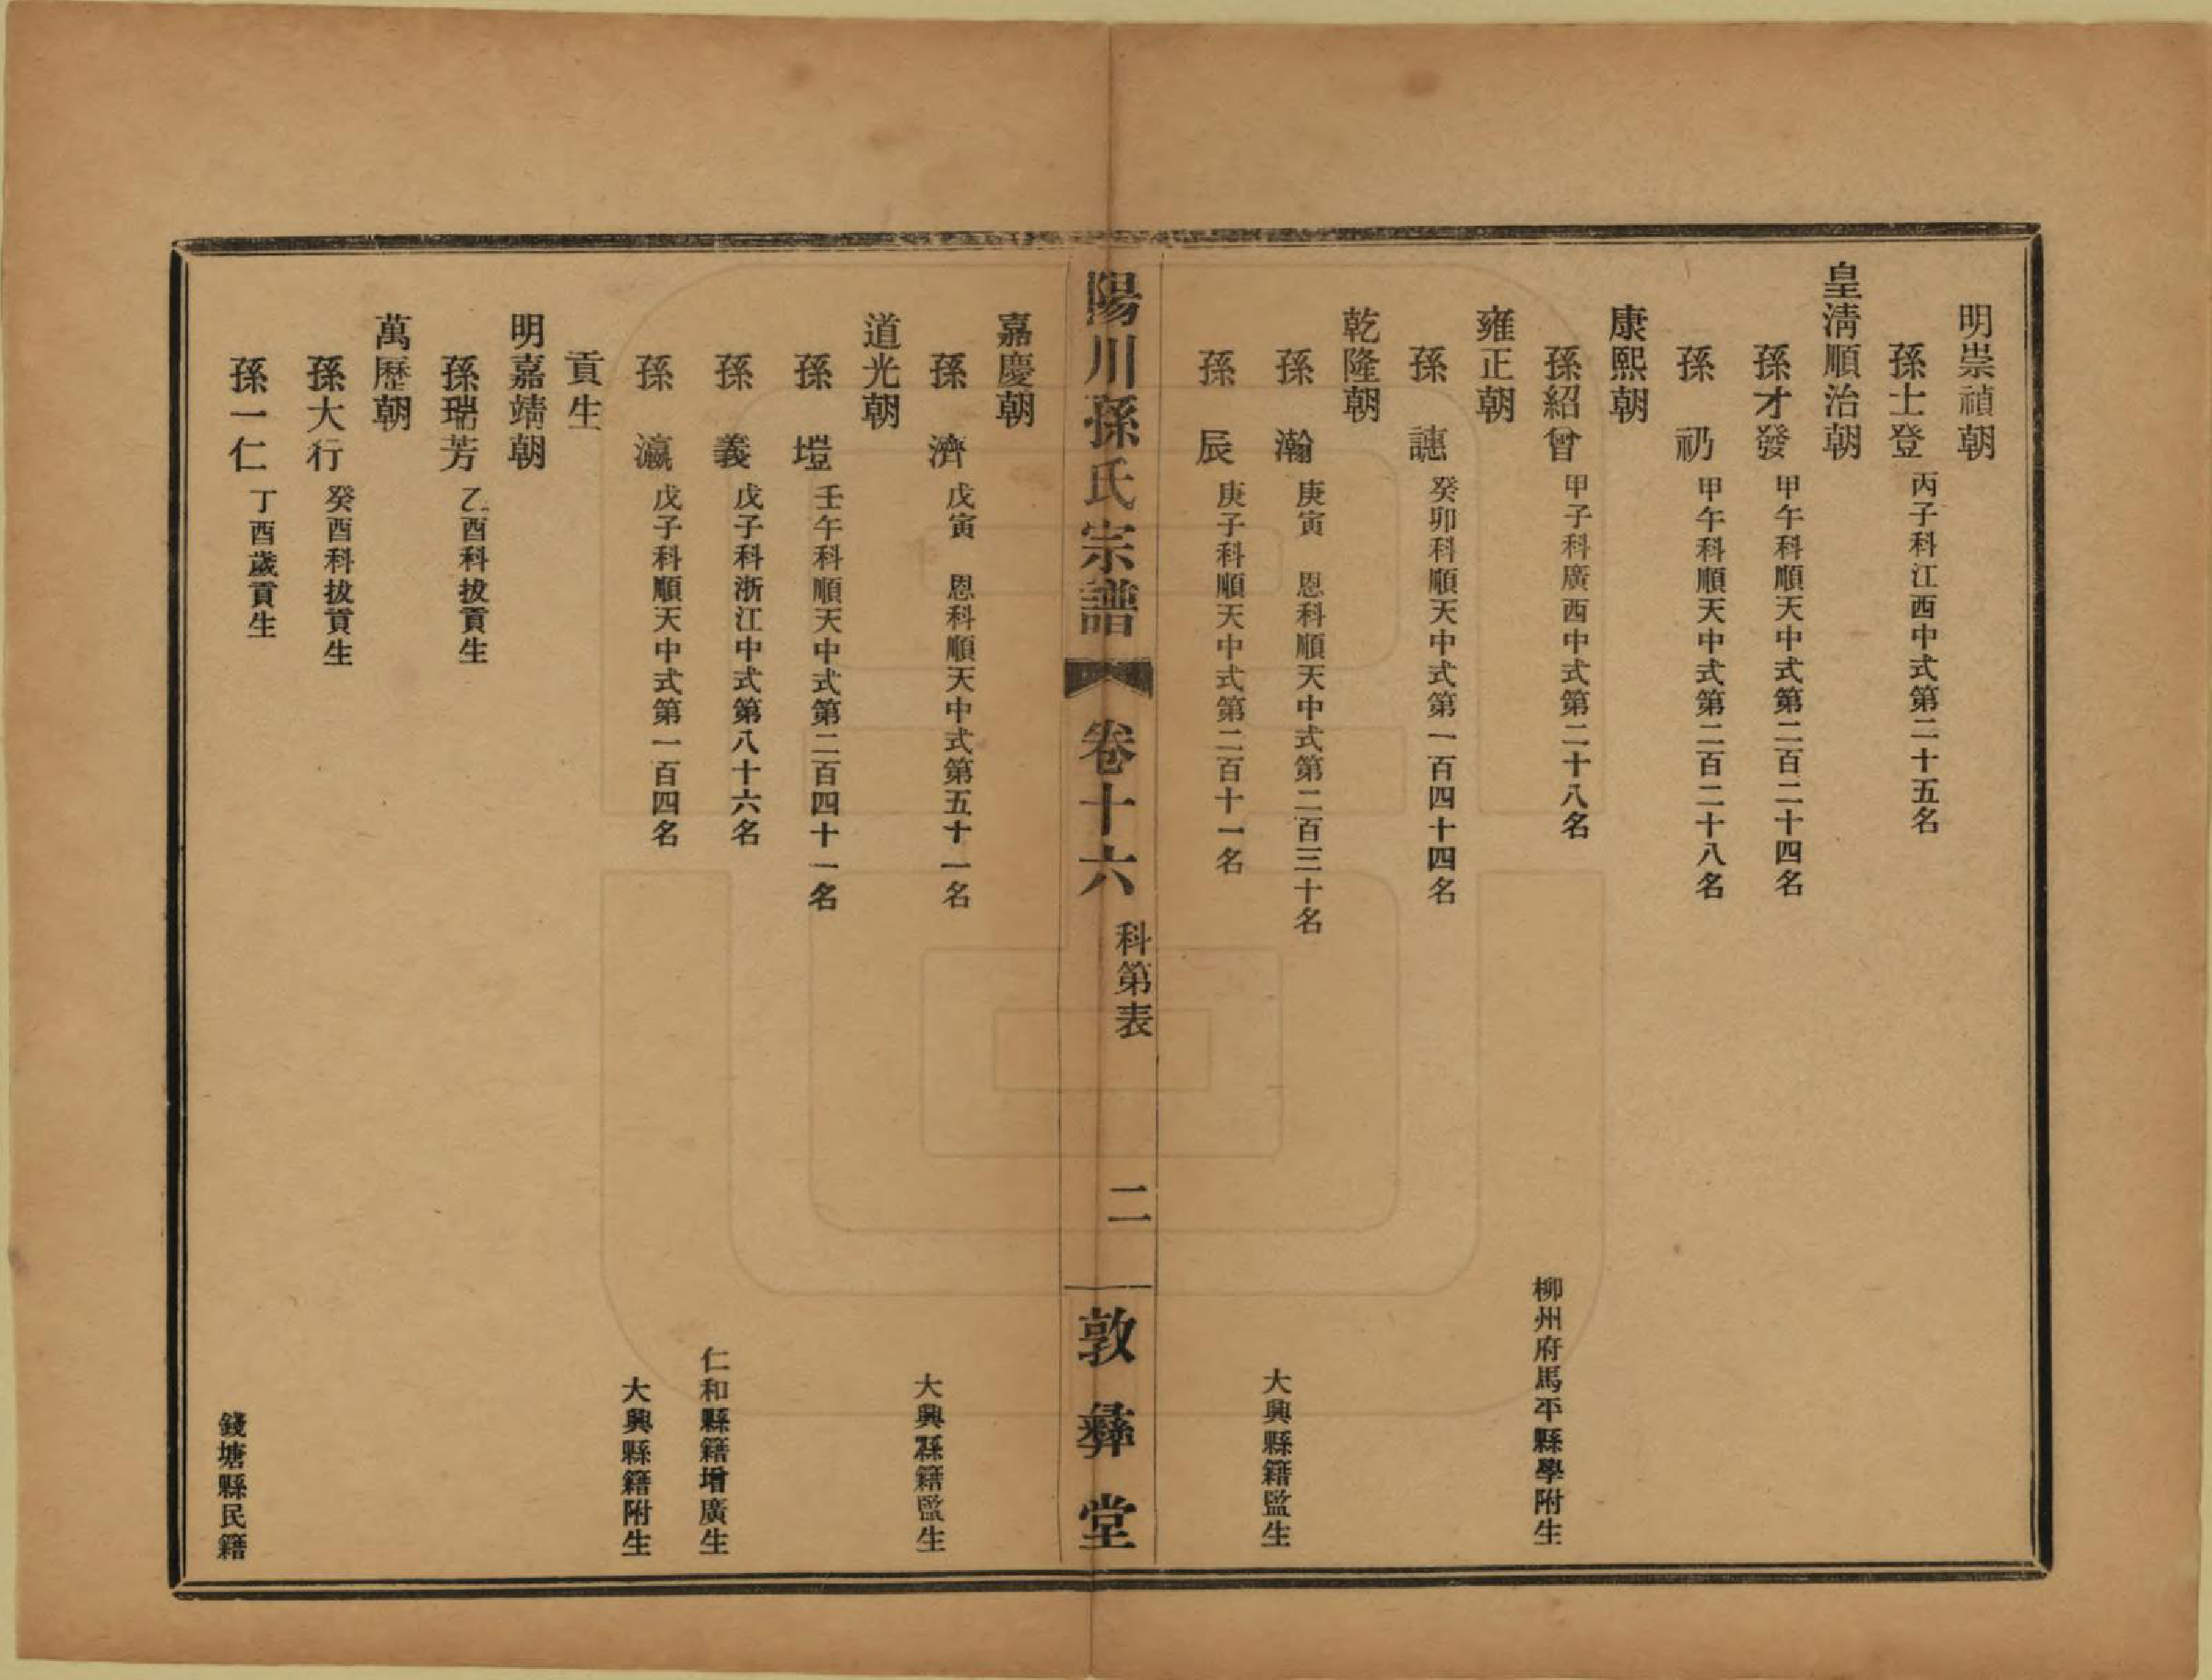 明崇禎朝
孫士登 丙子科江西中式第二十五名
皇清順治朝
孫才發 甲午科順天中式第二百二十四名
孫 礽 甲午科順天中式第二百二十八名
康熙朝
孫紹曾 甲子科廣西中式第二十八名 柳州府馬平縣學附生
雍正朝
孫 譓 癸卯科順天中式第一百四十四名
乾隆朝
孫 瀚 庚寅 恩科順天中式第二百三十名 大興縣籍監生
孫 辰 庚子科順天中式第二百十一名
陽川孫氏宗譜 卷十六 科第表 二 敦彝堂
嘉慶朝
孫 濟 戊寅 恩科順天中式第五十一名 大興縣籍監生
道光朝
孫 塏 壬午科順天中式第二百四十一名
孫 義 戊子科浙江中式第八十六名 仁和縣籍增廣生
孫 瀛 戊子科順天中式第一百四名 大興縣籍附生
貢生
明嘉靖朝
孫瑞芳 乙酉科拔貢生
萬歷朝
孫大行 癸酉科拔貢生
孫一仁 丁酉歲貢生 錢塘縣民籍